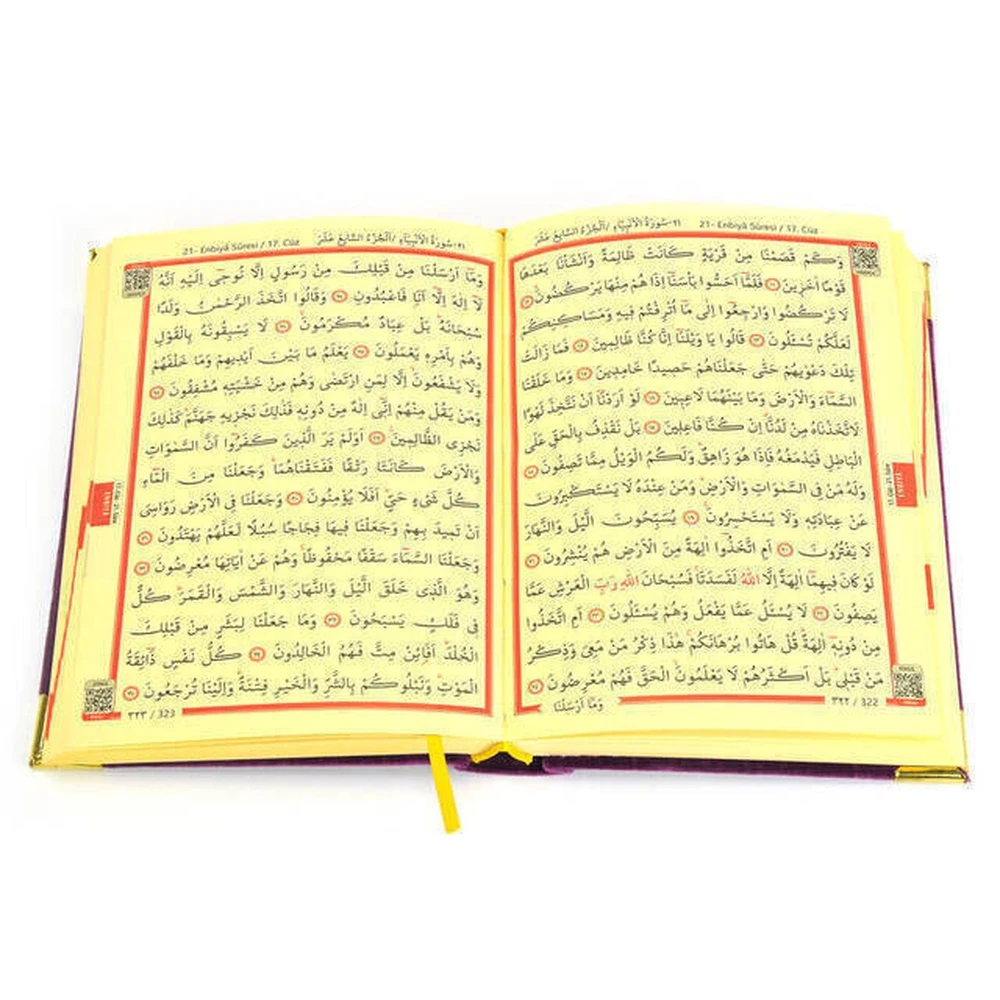 ٢١-سُورَةُ الْاَنْبِيَاءِ /اَلْجُزْءُ السَّابِعَ عَشَرَ 21- Enbiyâ Sûresi / 17. Cüz
وَكَمْ قَصَمْنَا مِنْ قَرْيَةٍ كَانَتْ ظَالِمَةً وَاَنْشَأْنَا بَعْدَهَا
قَوْمًا اٰخَرٖينَ ﴿١١﴾ فَلَمَّٓا اَحَسُّوا بَأْسَنَٓا اِذَا هُمْ مِنْهَا يَرْكُضُونَ ﴿١٢﴾
لَا تَرْكُضُوا وَارْجِعُٓوا اِلٰى مَٓا اُتْرِفْتُمْ فٖيهِ وَمَسَاكِنِكُمْ
لَعَلَّكُمْ تُسْـَٔلُونَ ﴿١٣﴾ قَالُوا يَا وَيْلَنَٓا اِنَّا كُنَّا ظَالِمٖينَ ﴿١٤﴾ فَمَا زَالَتْ
تِلْكَ دَعْوٰيهُمْ حَتّٰى جَعَلْنَاهُمْ حَصٖيدًا خَامِدٖينَ ﴿١٥﴾ وَمَا خَلَقْنَا
السَّمَٓاءَ وَالْاَرْضَ وَمَا بَيْنَهُمَا لَاعِبٖينَ ﴿١٦﴾ لَوْ اَرَدْنَٓا اَنْ نَتَّخِذَ لَهْوًا
لَاتَّخَذْنَاهُ مِنْ لَدُنَّٓا اِنْ كُنَّا فَاعِلٖينَ ﴿١٧﴾ بَلْ نَقْذِفُ بِالْحَقِّ عَلَى
الْبَاطِلِ فَيَدْمَغُهُ فَاِذَا هُوَ زَاهِقٌ وَلَكُمُ الْوَيْلُ مِمَّا تَصِفُونَ ﴿١٨﴾
وَلَهُ مَنْ فِى السَّمٰوَاتِ وَالْاَرْضِ وَمَنْ عِنْدَهُ لَا يَسْتَكْبِرُونَ
عَنْ عِبَادَتِهٖ وَلَا يَسْتَحْسِرُونَ ﴿١٩﴾ يُسَبِّحُونَ الَّيْلَ وَالنَّهَارَ
لَا يَفْتُرُونَ ﴿٢٠﴾ اَمِ اتَّخَذُٓوا اٰلِهَةً مِنَ الْاَرْضِ هُمْ يُنْشِرُونَ ﴿٢١﴾
لَوْ كَانَ فٖيهِمَٓا اٰلِهَةٌ اِلَّا اللّٰهُ لَفَسَدَتَا فَسُبْحَانَ اللّٰهِ رَبِّ الْعَرْشِ عَمَّا
يَصِفُونَ ﴿٢٢﴾ لَا يُسْـَٔلُ عَمَّا يَفْعَلُ وَهُمْ يُسْـَٔلُونَ ﴿٢٣﴾ اَمِ اتَّخَذُوا
مِنْ دُونِهٖٓ اٰلِهَةً قُلْ هَاتُوا بُرْهَانَكُمْ هٰذَا ذِكْرُ مَنْ مَعِىَ وَذِكْرُ
مَنْ قَبْلٖى بَلْ اَكْثَرُهُمْ لَا يَعْلَمُونَ الْحَقَّ فَهُمْ مُعْرِضُونَ ﴿٢٤﴾
وَمَٓا اَرْسَلْنَا
٣٢٢ / 322
21- Enbiyâ Sûresi / 17. Cüz ٢١-سُورَةُ الْاَنْبِيَاءِ /اَلْجُزْءُ السَّابِعَ عَشَرَ
وَمَٓا اَرْسَلْنَا مِنْ قَبْلِكَ مِنْ رَسُولٍ اِلَّا نُوحٖٓى اِلَيْهِ اَنَّهُ
لَٓا اِلٰهَ اِلَّٓا اَنَا فَاعْبُدُونِ ﴿٢٥﴾ وَقَالُوا اتَّخَذَ الرَّحْمٰنُ وَلَدًا
سُبْحَانَهُ بَلْ عِبَادٌ مُكْرَمُونَ ﴿٢٦﴾ لَا يَسْبِقُونَهُ بِالْقَوْلِ
وَهُمْ بِاَمْرِهٖ يَعْمَلُونَ ﴿٢٧﴾ يَعْلَمُ مَا بَيْنَ اَيْدٖيهِمْ وَمَا خَلْفَهُمْ
وَلَا يَشْفَعُونَ اِلَّا لِمَنِ ارْتَضٰى وَهُمْ مِنْ خَشْيَتِهٖ مُشْفِقُونَ ﴿٢٨﴾
وَمَنْ يَقُلْ مِنْهُمْ اِنّٖٓى اِلٰهٌ مِنْ دُونِهٖ فَذٰلِكَ نَجْزٖيهِ جَهَنَّمَ كَذٰلِكَ
نَجْزِى الظَّالِمٖينَ ﴿٢٩﴾ اَوَلَمْ يَرَ الَّذٖينَ كَفَرُٓوا اَنَّ السَّمٰوَاتِ
وَالْاَرْضَ كَانَتَا رَتْقًا فَفَتَقْنَاهُمَا وَجَعَلْنَا مِنَ الْمَٓاءِ
كُلَّ شَىْءٍ حَىٍّ اَفَلَا يُؤْمِنُونَ ﴿٣٠﴾ وَجَعَلْنَا فِى الْاَرْضِ رَوَاسِىَ
اَنْ تَمٖيدَ بِهِمْ وَجَعَلْنَا فٖيهَا فِجَاجًا سُبُلًا لَعَلَّهُمْ يَهْتَدُونَ ﴿٣١﴾
وَجَعَلْنَا السَّمَٓاءَ سَقْفًا مَحْفُوظًا وَهُمْ عَنْ اٰيَاتِهَا مُعْرِضُونَ ﴿٣٢﴾
وَهُوَ الَّذٖى خَلَقَ الَّيْلَ وَالنَّهَارَ وَالشَّمْسَ وَالْقَمَرَ كُلٌّ
فٖى فَلَكٍ يَسْبَحُونَ ﴿٣٣﴾ وَمَا جَعَلْنَا لِبَشَرٍ مِنْ قَبْلِكَ
الْخُلْدَ اَفَا۬ئِنْ مِتَّ فَهُمُ الْخَالِدُونَ ﴿٣٤﴾ كُلُّ نَفْسٍ ذَٓائِقَةُ
الْمَوْتِ وَنَبْلُوكُمْ بِالشَّرِّ وَالْخَيْرِ فِتْنَةً وَاِلَيْنَا تُرْجَعُونَ ﴿٣٥﴾
٣٢٣ / 323